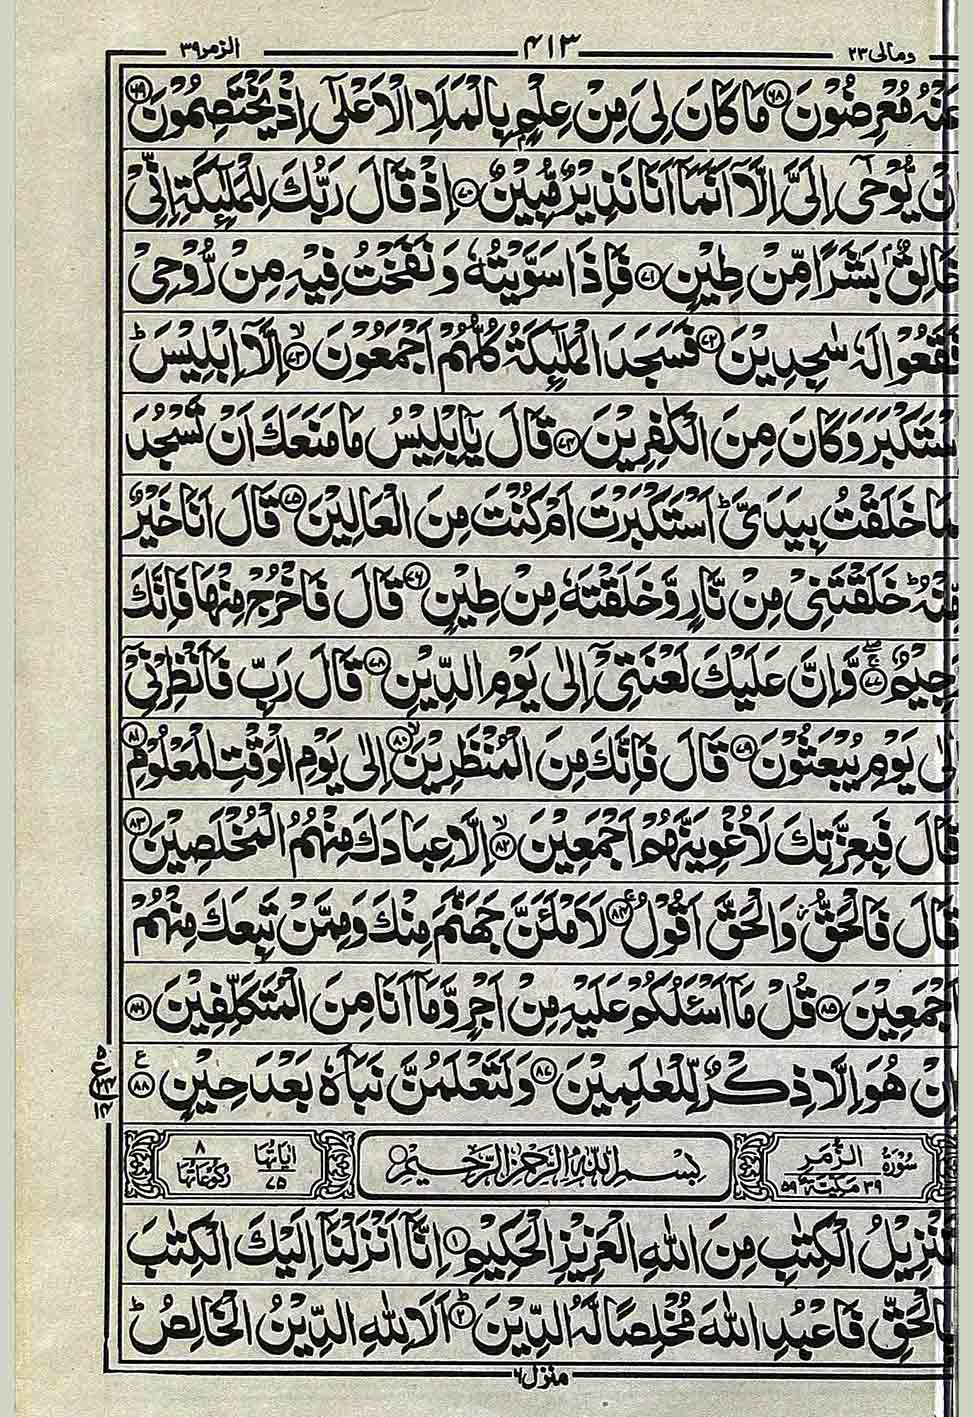 ومالی ٢٣
٤١٣
الزمر ٣٩
مُعْرِضُوْنَ ٦٨ مَا كَانَ لِیَ مِنْ عِلْمٍۭ بِالْمَلَاِ الْاَعْلٰۤی اِذْ یَخْتَصِمُوْنَ ٦٩
یُّوْحٰۤی اِلَیَّ اِلَّاۤ اَنَّمَاۤ اَنَا نَذِیْرٌ مُّبِیْنٌ ٧٠ اِذْ قَالَ رَبُّكَ لِلْمَلٰٓىِٕكَةِ اِنِّیْ
خَالِقٌۢ بَشَرًا مِّنْ طِیْنٍ ٧١ فَاِذَا سَوَّیْتُهٗ وَ نَفَخْتُ فِیْهِ مِنْ رُّوْحِیْ
فَقَعُوْا لَهٗ سٰجِدِیْنَ ٧٢ فَسَجَدَ الْمَلٰٓىِٕكَةُ كُلُّهُمْ اَجْمَعُوْنَ ۙ ٧٣ اِلَّاۤ اِبْلِیْسَ ؕ
سْتَكْبَرَ وَ كَانَ مِنَ الْكٰفِرِیْنَ ٧٤ قَالَ یٰۤاِبْلِیْسُ مَا مَنَعَكَ اَنْ تَسْجُدَ
مَا خَلَقْتُ بِیَدَیَّ ؕ اَسْتَكْبَرْتَ اَمْ كُنْتَ مِنَ الْعَالِیْنَ ٧٥ قَالَ اَنَا خَیْرٌ
مِّنْهُ ؕ خَلَقْتَنِیْ مِنْ نَّارٍ وَّ خَلَقْتَهٗ مِنْ طِیْنٍ ٧٦ قَالَ فَاخْرُجْ مِنْهَا فَاِنَّكَ
رَجِیْمٌ ٧٧ وَّ اِنَّ عَلَیْكَ لَعْنَتِیْۤ اِلٰی یَوْمِ الدِّیْنِ ٧٨ قَالَ رَبِّ فَاَنْظِرْنِیْۤ
اِلٰی یَوْمِ یُبْعَثُوْنَ ٧٩ قَالَ فَاِنَّكَ مِنَ الْمُنْظَرِیْنَ ۙ ٨٠ اِلٰی یَوْمِ الْوَقْتِ الْمَعْلُوْمِ ٨١
قَالَ فَبِعِزَّتِكَ لَاُغْوِیَنَّهُمْ اَجْمَعِیْنَ ۙ ٨٢ اِلَّا عِبَادَكَ مِنْهُمُ الْمُخْلَصِیْنَ ٨٣
قَالَ فَالْحَقُّ ؗ وَ الْحَقَّ اَقُوْلُ ۚ ٨٤ لَاَمْلَـَٔنَّ جَهَنَّمَ مِنْكَ وَ مِمَّنْ تَبِعَكَ مِنْهُمْ
اَجْمَعِیْنَ ٨٥ قُلْ مَاۤ اَسْـَٔلُكُمْ عَلَیْهِ مِنْ اَجْرٍ وَّ مَاۤ اَنَا مِنَ الْمُتَكَلِّفِیْنَ ٨٦
اِنْ هُوَ اِلَّا ذِكْرٌ لِّلْعٰلَمِیْنَ ٨٧ وَ لَتَعْلَمُنَّ نَبَاَهٗ بَعْدَ حِیْنٍ ٨٨ ع
سُوْرَةُ الزُّمَرِ ٣٩ مَكِّیَّةٌ ٥٩
بِسْمِ اللّٰهِ الرَّحْمٰنِ الرَّحِیْمِ
اٰیَاتُهَا ٧٥
رُكُوْعَاتُهَا ٨
تَنْزِیْلُ الْكِتٰبِ مِنَ اللّٰهِ الْعَزِیْزِ الْحَكِیْمِ ١ اِنَّاۤ اَنْزَلْنَاۤ اِلَیْكَ الْكِتٰبَ
بِالْحَقِّ فَاعْبُدِ اللّٰهَ مُخْلِصًا لَّهُ الدِّیْنَ ؕ ٢ اَلَا لِلّٰهِ الدِّیْنُ الْخَالِصُ ؕ
منزل ٦